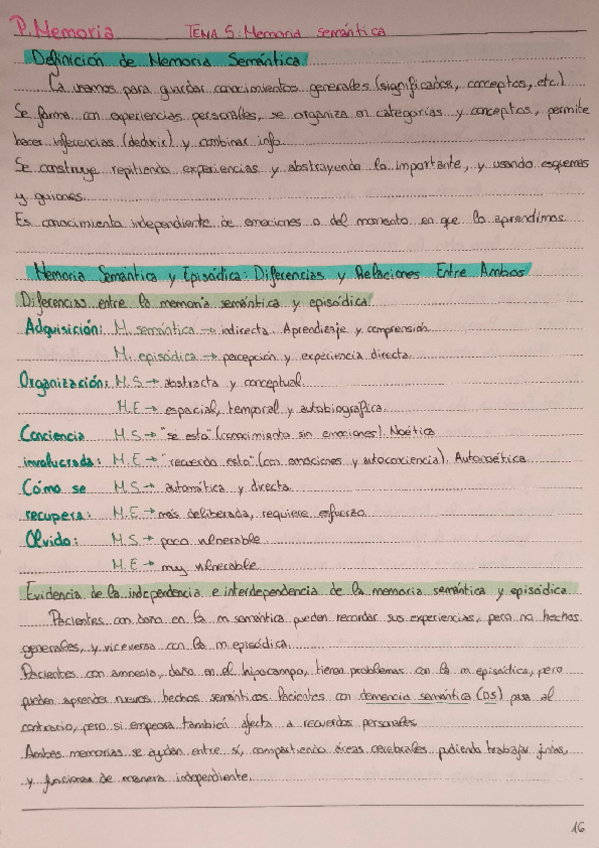 P. Memoria TEMA 5: Memoria semántica
Definición de Memoria Semántica
La usamos para guardar conocimientos generales (significados, conceptos, etc)
Se forma con experiencias personales, se organiza en categorías y conceptos, permite
hacer inferencias (deducir) y combinar info.
Se construye repitiendo experiencias y abstrayendo lo importante, y usando esquemas
y guiones.
Es conocimiento independiente de emociones o del momento en que lo aprendimos.
Memoria Semántica y Episódica: Diferencias y Relaciones Entre Ambas
Diferencias entre la memoria semántica y episódica
Adquisición: M. semántica → indirecta. Aprendizaje y comprensión.
M. episódica → percepción y experiencia directa.
Organización: M.S → abstracta y conceptual.
M.E → espacial, temporal y autobiográfica.
Conciencia M.S → "sé esto" (conocimiento sin emociones). Noética
involucrada: M.E → "recuerdo esto" (con emociones y autoconciencia). Autonoética
Cómo se M.S → automática y directa.
recupera: M.E → más deliberada, requiere esfuerzo.
Olvido: M.S → poco vulnerable
M.E → muy vulnerable
Evidencia de la independencia e interdependencia de la memoria semántica y episódica
Pacientes con daño en la m semántica pueden recordar sus experiencias, pero no hechos
generales, y viceversa con la m episódica.
Pacientes con amnesia, daño en el hipocampo, tienen problemas con la m episódica, pero
pueden aprender nuevos hechos semánticos. Pacientes con demencia semántica (DS) pasa al
contrario, pero si empeora también afecta a recuerdos personales.
Ambas memorias se ayudan entre sí, compartiendo áreas cerebrales pudiendo trabajar juntas,
y funcionar de manera independiente.
16